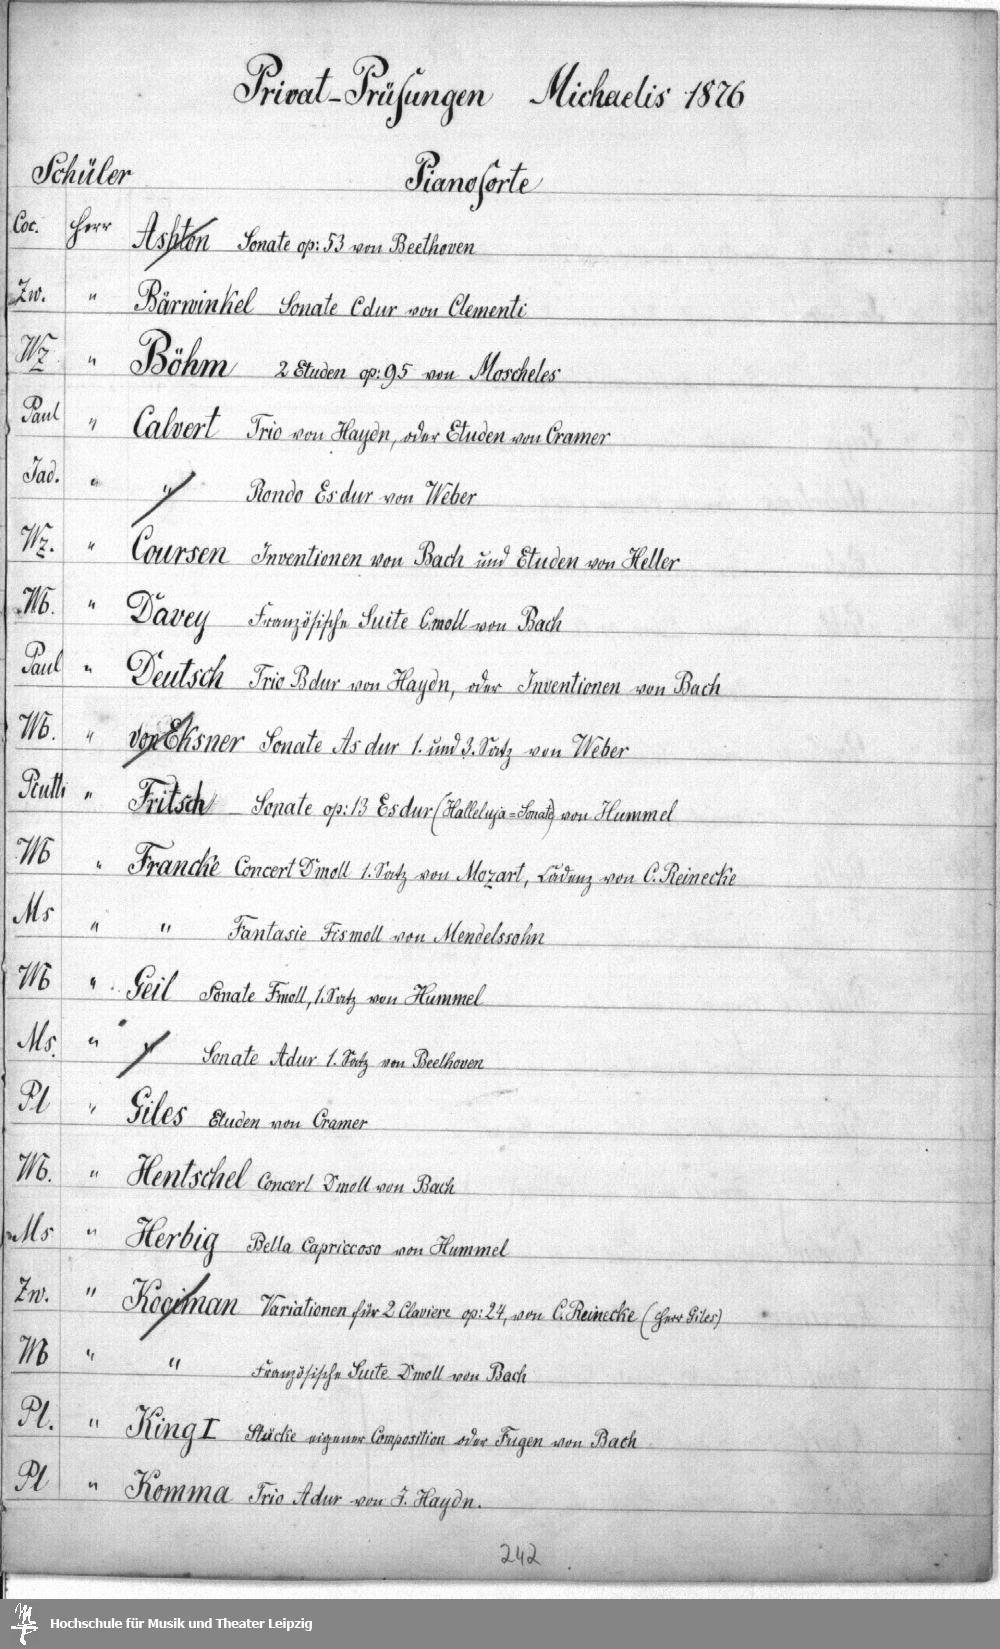 Privat-Prüfungen Michaelis 1876
Schüler Pianoforte
Coc. Herr Ashton Sonate op: 53 von Beethoven
Zw. " Bärwinkel Sonate C dur von Clementi
Wz " Böhm 2 Etuden op: 95 von Moscheles
Paul " Calvert Trio von Haydn, oder Etuden von Cramer
Jad. " " Rondo Es dur von Weber
Wz. " Coursen Inventionen von Bach und Etuden von Heller
W. " Davey Französische Suite C moll von Bach
Paul " Deutsch Trio B dur von Haydn, oder Inventionen von Bach
W. " von Eksner Sonate As dur 1. und 3. Satz von Weber
Piutti " Fritsch Sonate op: 13 Es dur (Halleluja=Sonate) von Hummel
W " Francke Concert D moll 1. Satz von Mozart, Cadenz von C. Reinecke
Ms " " Fantasie Fis moll von Mendelssohn
W " Geil Sonate F moll, 1. Satz von Hummel
Ms. " " Sonate A dur 1. Satz von Beethoven
Pl " Giles Etuden von Cramer
W. " Hentschel Concert D moll von Bach
Ms " Herbig Bella Capriccoso von Hummel
Zw. " Kogiman Variationen für 2 Claviere op: 24, von C. Reinecke (Herr Giles)
W " " Französische Suite D moll von Bach
Pl. " King I Stücke eigener Composition oder Fugen von Bach
Pl " Komma Trio A dur von J. Haydn.
242
Hochschule für Musik und Theater Leipzig